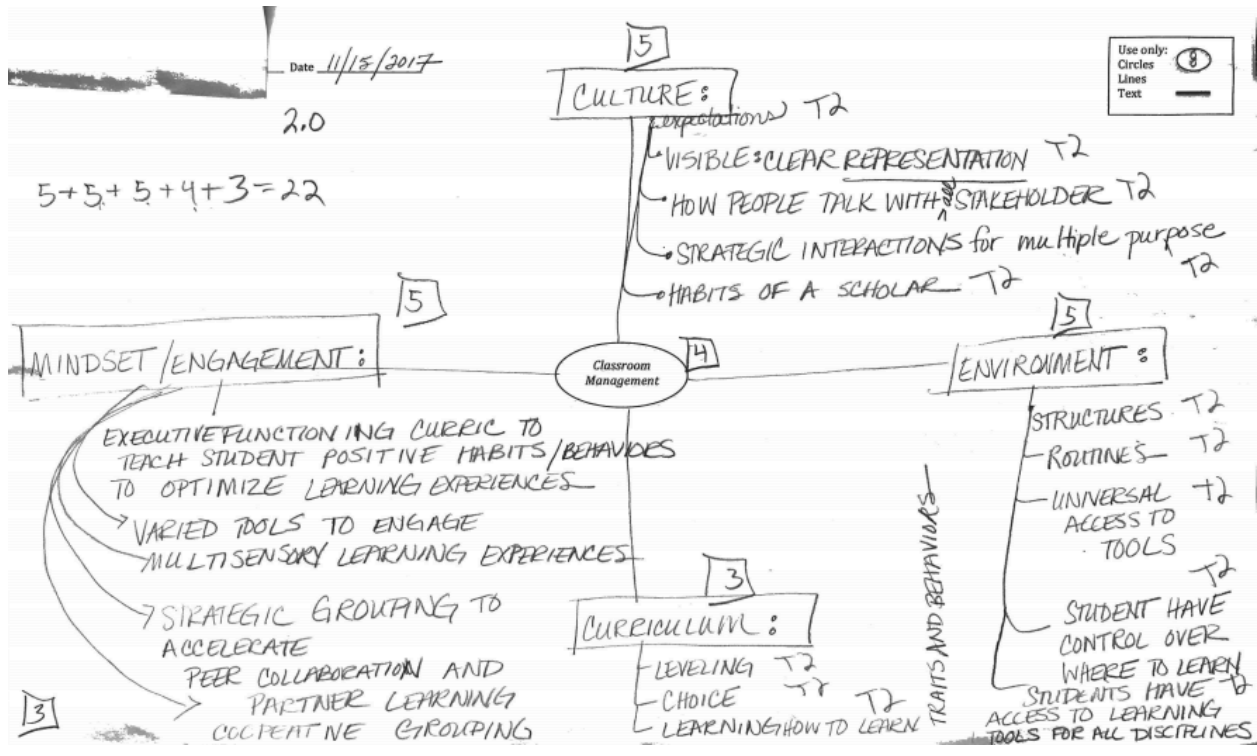 Date 11/15/2017
2.0
5+5+5+4+3=22
Use only:
Circles
Lines
Text
8
5
CULTURE:
expectations T2
VISIBLE: CLEAR REPRESENTATION T2
HOW PEOPLE TALK WITH all STAKEHOLDER T2
STRATEGIC INTERACTIONS for multiple purpose
T2
HABITS OF A SCHOLAR T2
5
MINDSET/ENGAGEMENT:
EXECUTIVE FUNCTIONING CURRIC TO
TEACH STUDENT POSITIVE HABITS/BEHAVIORS
TO OPTIMIZE LEARNING EXPERIENCES
VARIED TOOLS TO ENGAGE
MULTISENSORY LEARNING EXPERIENCES
STRATEGIC GROUPING TO
ACCELERATE
PEER COLLABORATION AND
PARTNER LEARNING
COOPEATIVE GROUPING
3
Classroom
Management
4
3
CURRICULUM:
LEVELING T2
CHOICE T2
LEARNING HOW TO LEARN T2
TRAITS AND BEHAVIORS
5
ENVIRONMENT:
STRUCTURES T2
ROUTINES T2
UNIVERSAL T2
ACCESS TO
TOOLS
T2
STUDENT HAVE
CONTROL OVER
WHERE TO LEARN
STUDENTS HAVE T2
ACCESS TO LEARNING
TOOLS FOR ALL DISCIPLINES